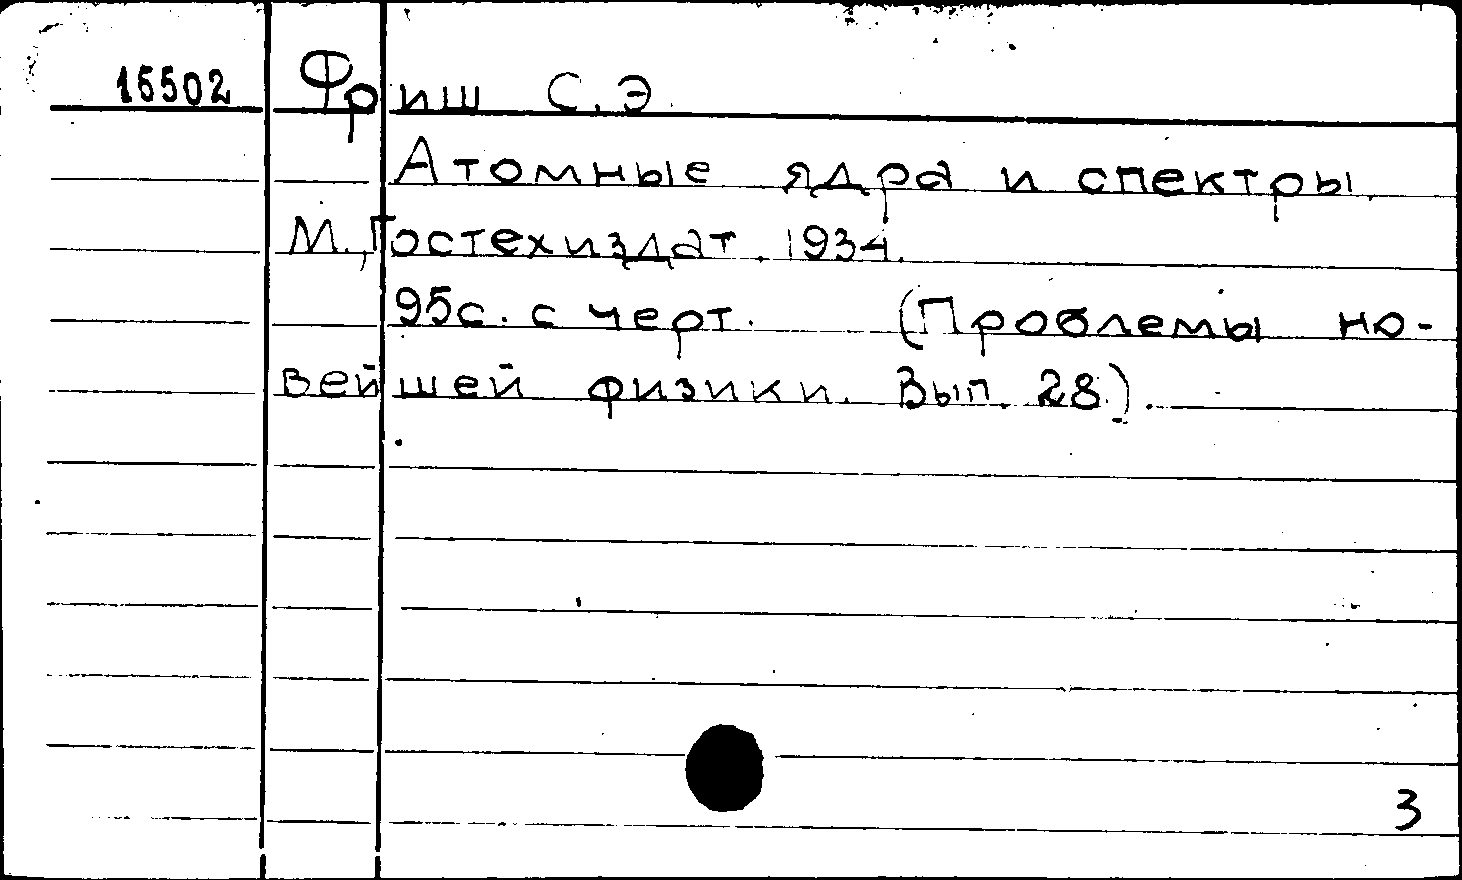 15502 Фриш С.Э.
Атомные ядра и спектры.
М., Гостехиздат. 1934.
95с. с черт. (Проблемы но-
вейшей физики. Вып. 28).
3